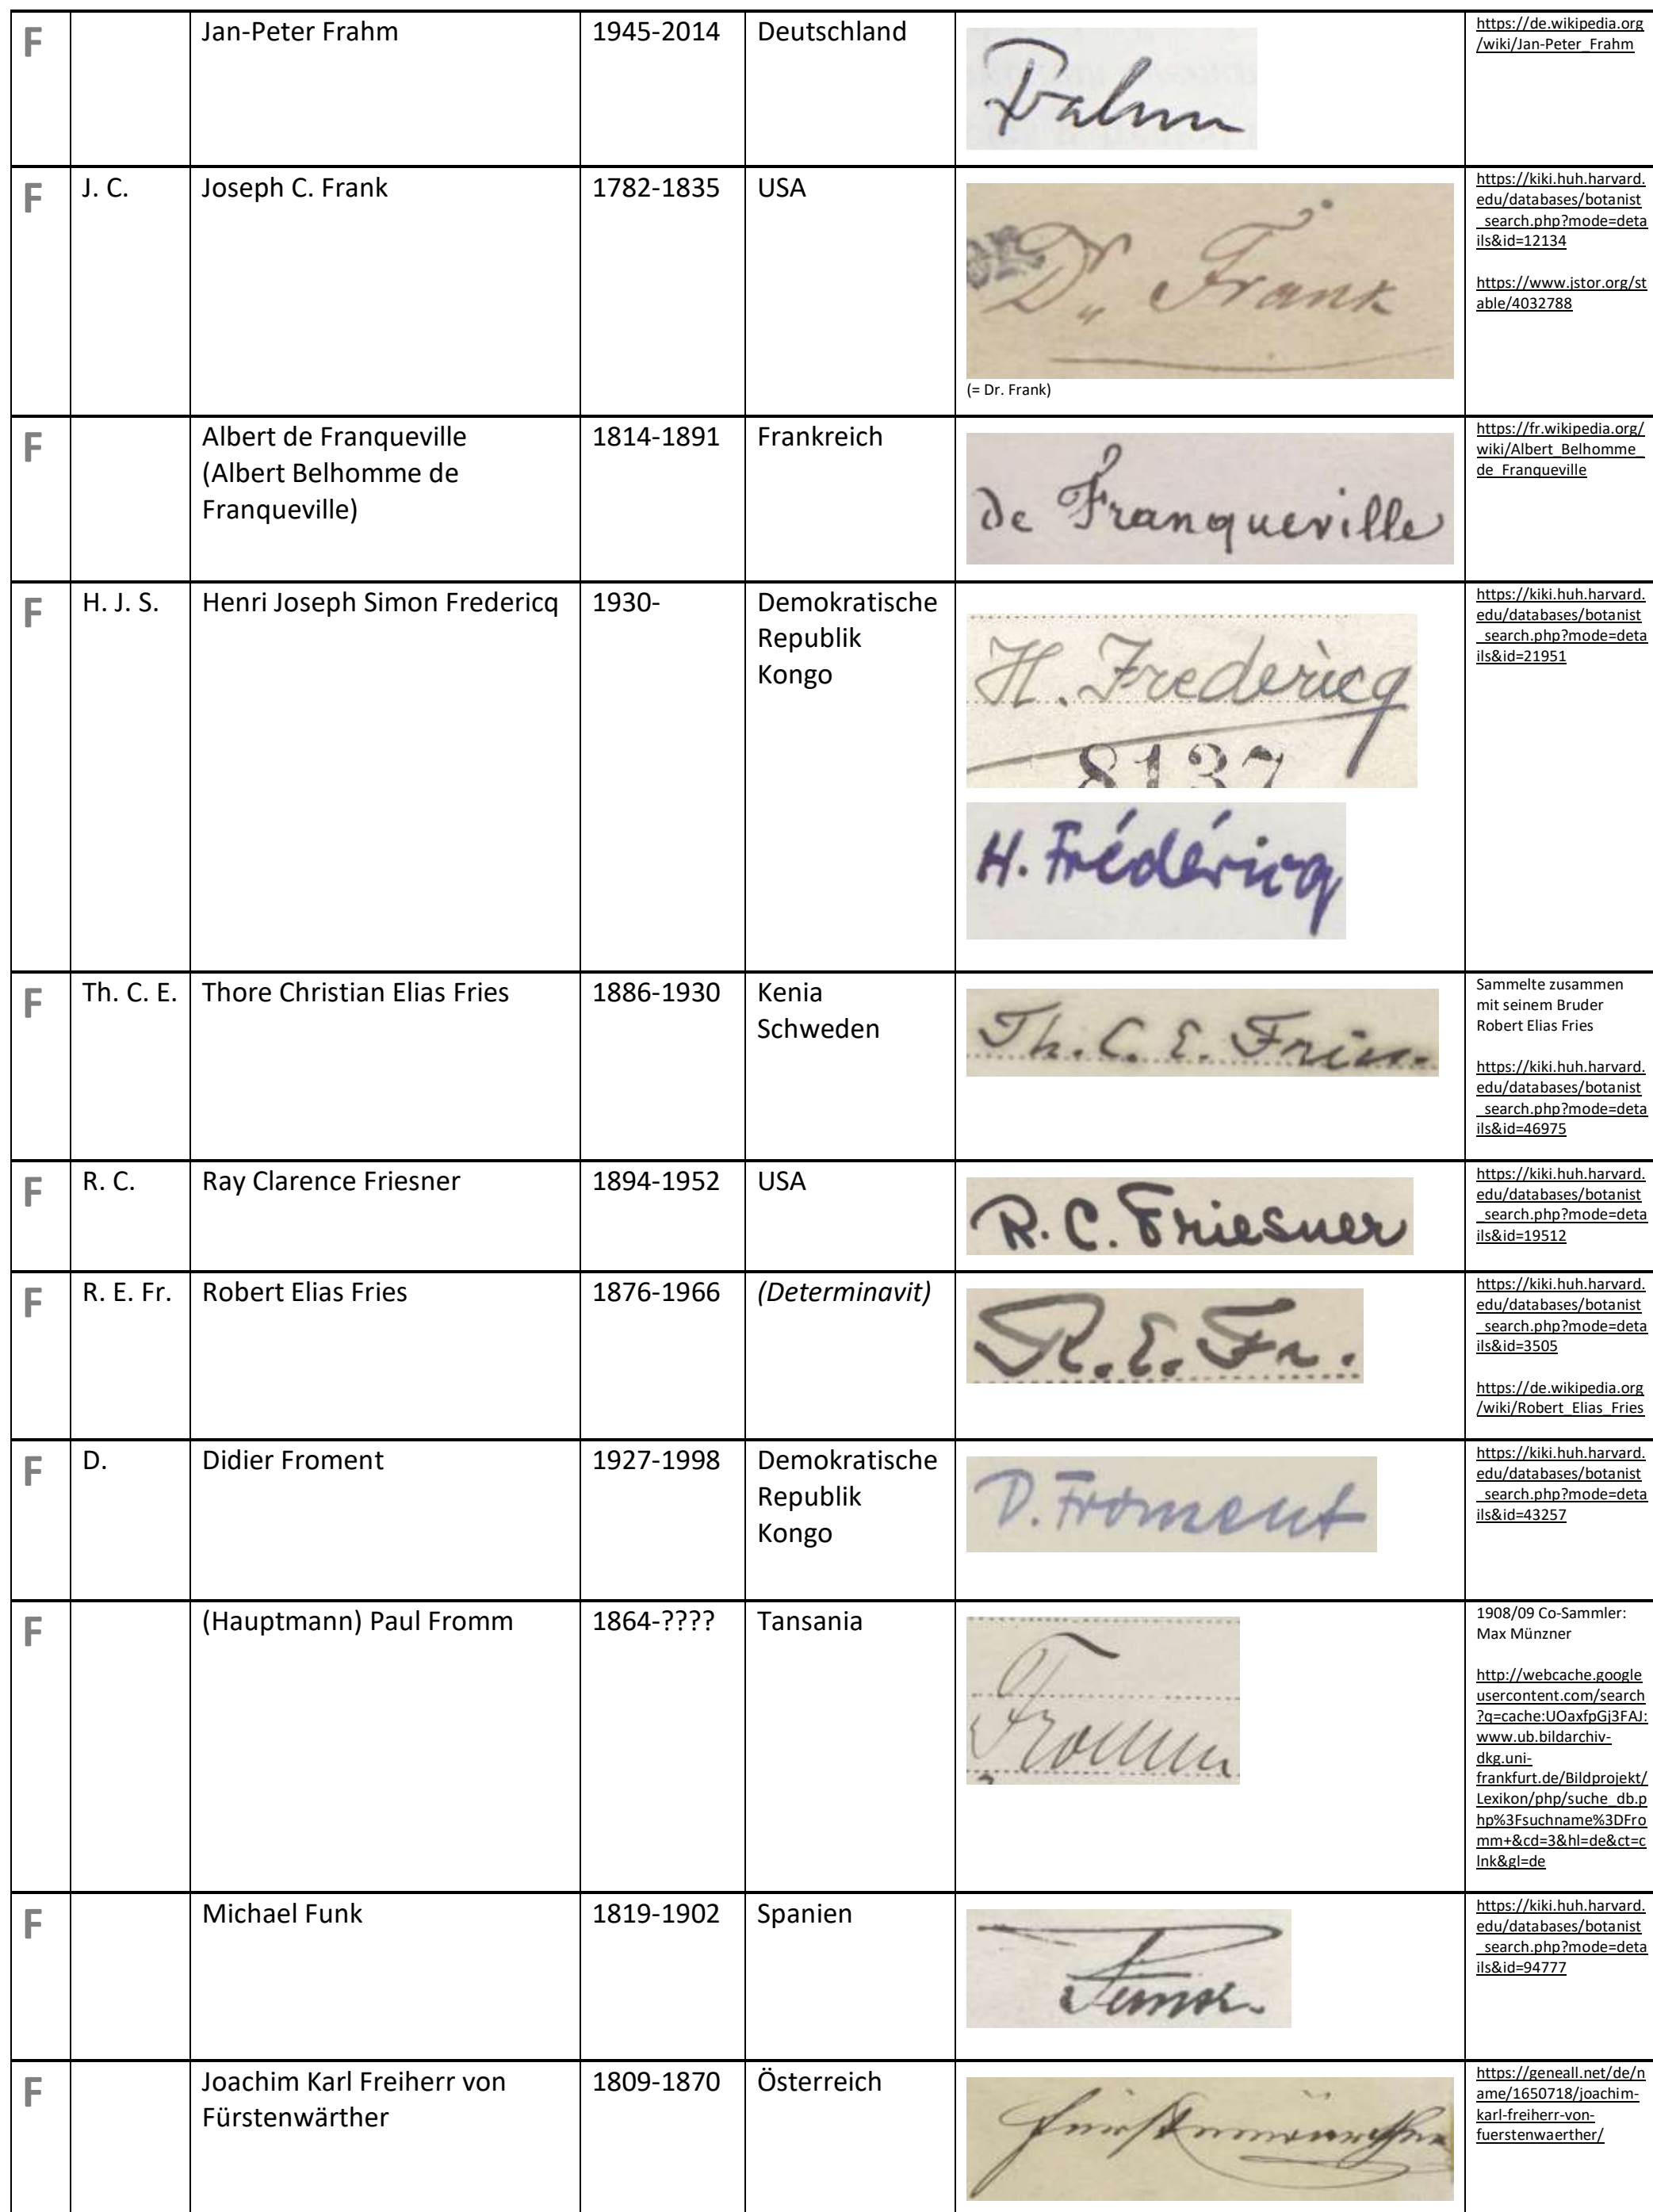 F
Jan-Peter Frahm
1945-2014
Deutschland
Frahm
https://de.wikipedia.org
/wiki/Jan-Peter_Frahm
F
J. C.
Joseph C. Frank
1782-1835
USA
Dr. Frank
(= Dr. Frank)
https://kiki.huh.harvard.
edu/databases/botanist
_search.php?mode=deta
ils&id=12134
https://www.jstor.org/st
able/4032788
F
Albert de Franqueville
(Albert Belhomme de
Franqueville)
1814-1891
Frankreich
de Franqueville
https://fr.wikipedia.org/
wiki/Albert_Belhomme_
de_Franqueville
F
H. J. S.
Henri Joseph Simon Fredericq
1930-
Demokratische
Republik
Kongo
H. Fredericq
8137
H. Frédéricq
https://kiki.huh.harvard.
edu/databases/botanist
_search.php?mode=deta
ils&id=21951
F
Th. C. E.
Thore Christian Elias Fries
1886-1930
Kenia
Schweden
Th. C. E. Fries.
Sammelte zusammen
mit seinem Bruder
Robert Elias Fries
https://kiki.huh.harvard.
edu/databases/botanist
_search.php?mode=deta
ils&id=46975
F
R. C.
Ray Clarence Friesner
1894-1952
USA
R. C. Friesner
https://kiki.huh.harvard.
edu/databases/botanist
_search.php?mode=deta
ils&id=19512
F
R. E. Fr.
Robert Elias Fries
1876-1966
(Determinavit)
R. E. Fr.
https://kiki.huh.harvard.
edu/databases/botanist
_search.php?mode=deta
ils&id=3505
https://de.wikipedia.org
/wiki/Robert_Elias_Fries
F
D.
Didier Froment
1927-1998
Demokratische
Republik
Kongo
D. Froment
https://kiki.huh.harvard.
edu/databases/botanist
_search.php?mode=deta
ils&id=43257
F
(Hauptmann) Paul Fromm
1864-????
Tansania
Fromm
1908/09 Co-Sammler:
Max Münzner
http://webcache.google
usercontent.com/search
?q=cache:UOaxfpGj3FAJ:
www.ub.bildarchiv-
dkg.uni-
frankfurt.de/Bildprojekt/
Lexikon/php/suche_db.p
hp%3Fsuchname%3DFro
mm+&cd=3&hl=de&ct=c
lnk&gl=de
F
Michael Funk
1819-1902
Spanien
Funk.
https://kiki.huh.harvard.
edu/databases/botanist
_search.php?mode=deta
ils&id=94777
F
Joachim Karl Freiherr von
Fürstenwärther
1809-1870
Österreich
Fürstenwärther
https://geneall.net/de/n
ame/1650718/joachim-
karl-freiherr-von-
fuerstenwaerther/